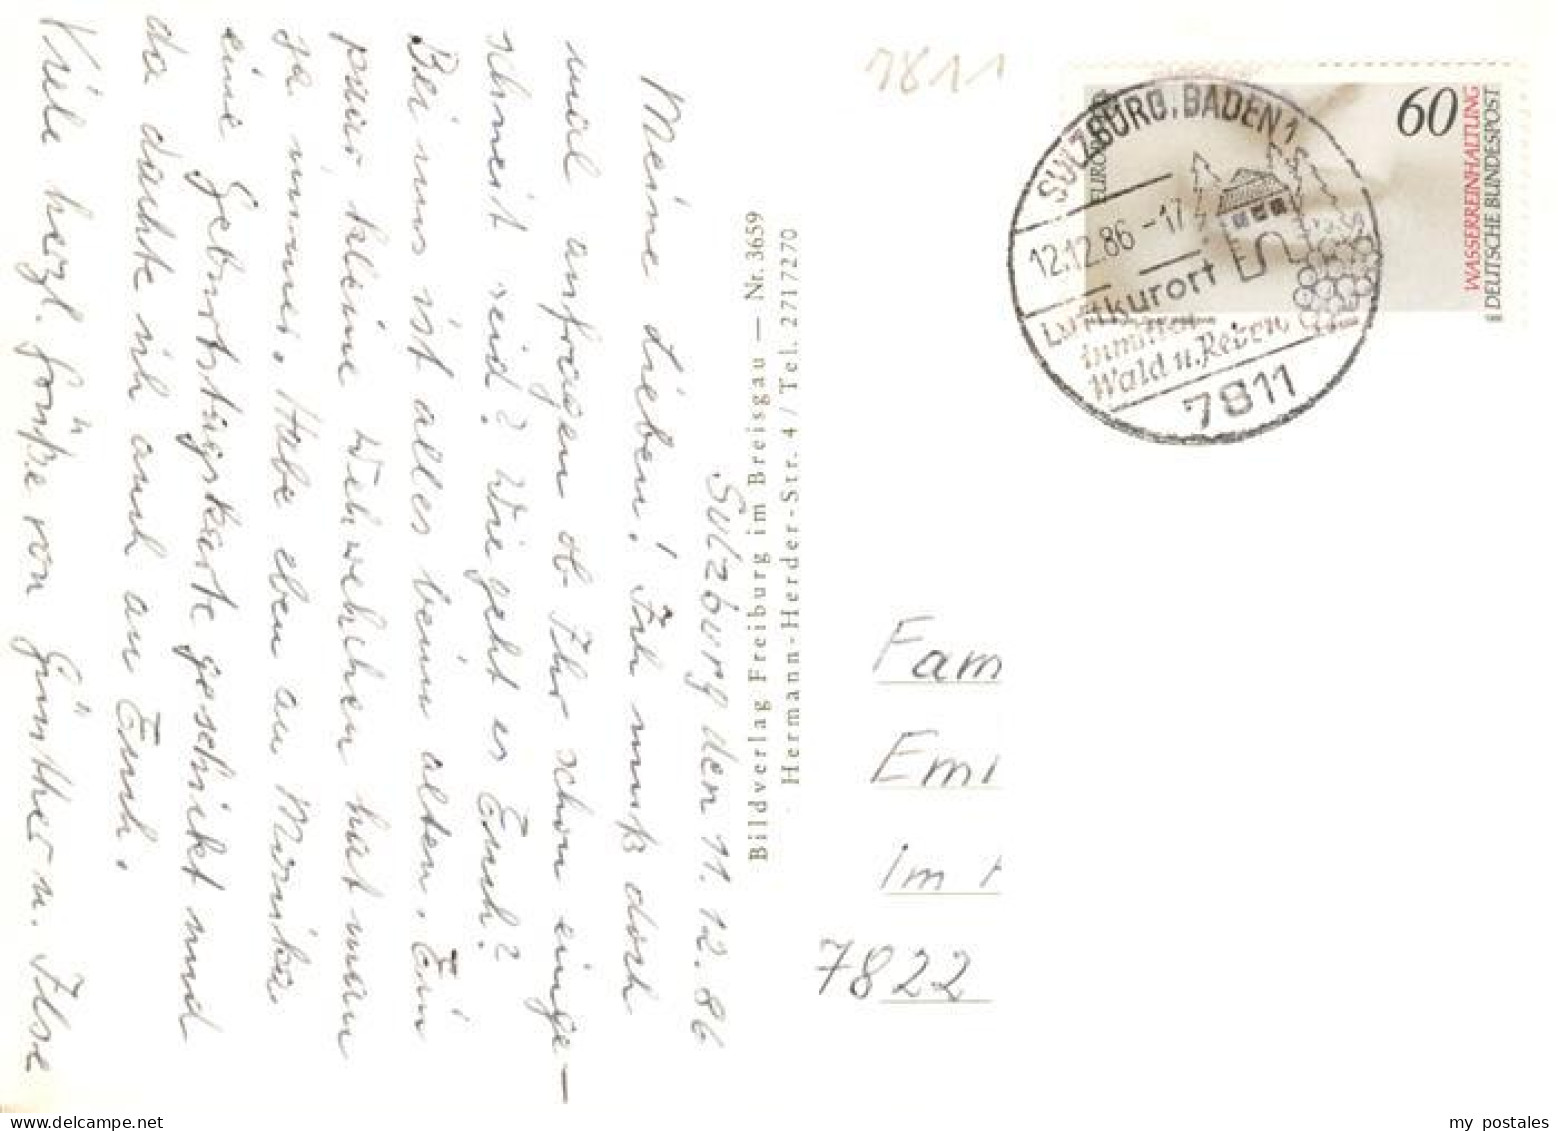 Sulzburg den 11.12.86
Meine Lieben! Ich muß doch
mal anfragen ob Ihr schon einge-
schneit seid? Wie geht es Euch?
Bei uns ist alles beim alten. Ein
paar kleine Wehwehchen hat man
ja immer. Habe eben an Monika
eine Geburtstagskarte geschickt und
da dachte ich auch an Euch.
Viele herzl. Grüße von Günther u. Ilse
Bildverlag Freiburg im Breisgau — Nr. 3659
Hermann-Herder-Str. 4 / Tel. 2717270
7811
60
WASSERREINHALTUNG
DEUTSCHE BUNDESPOST
SULZBURG, BADEN 1
12.12.86 -17
Luftkurort
inmitten
Wald u. Reben
7811
Fam
Emi
Im
7822
my postales